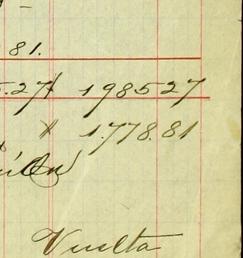 81.
5.27 x 198527
x 1.778.81
Vuelta